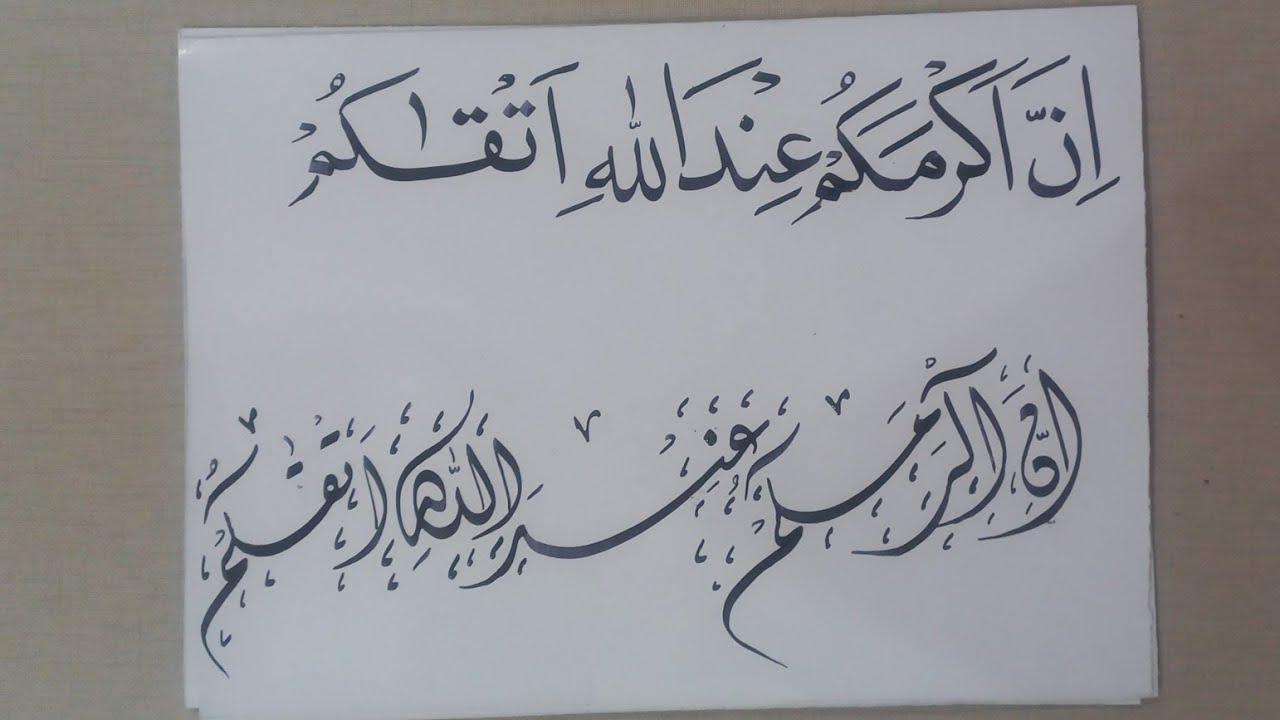 اِنَّ اَكْرَمَكُمْ عِنْدَ اللهِ اَتْقٰىكُمْ
اِنَّ اَكْرَمَكُمْ عِنْدَ اللّٰهِ اَتْقٰىكُمْ